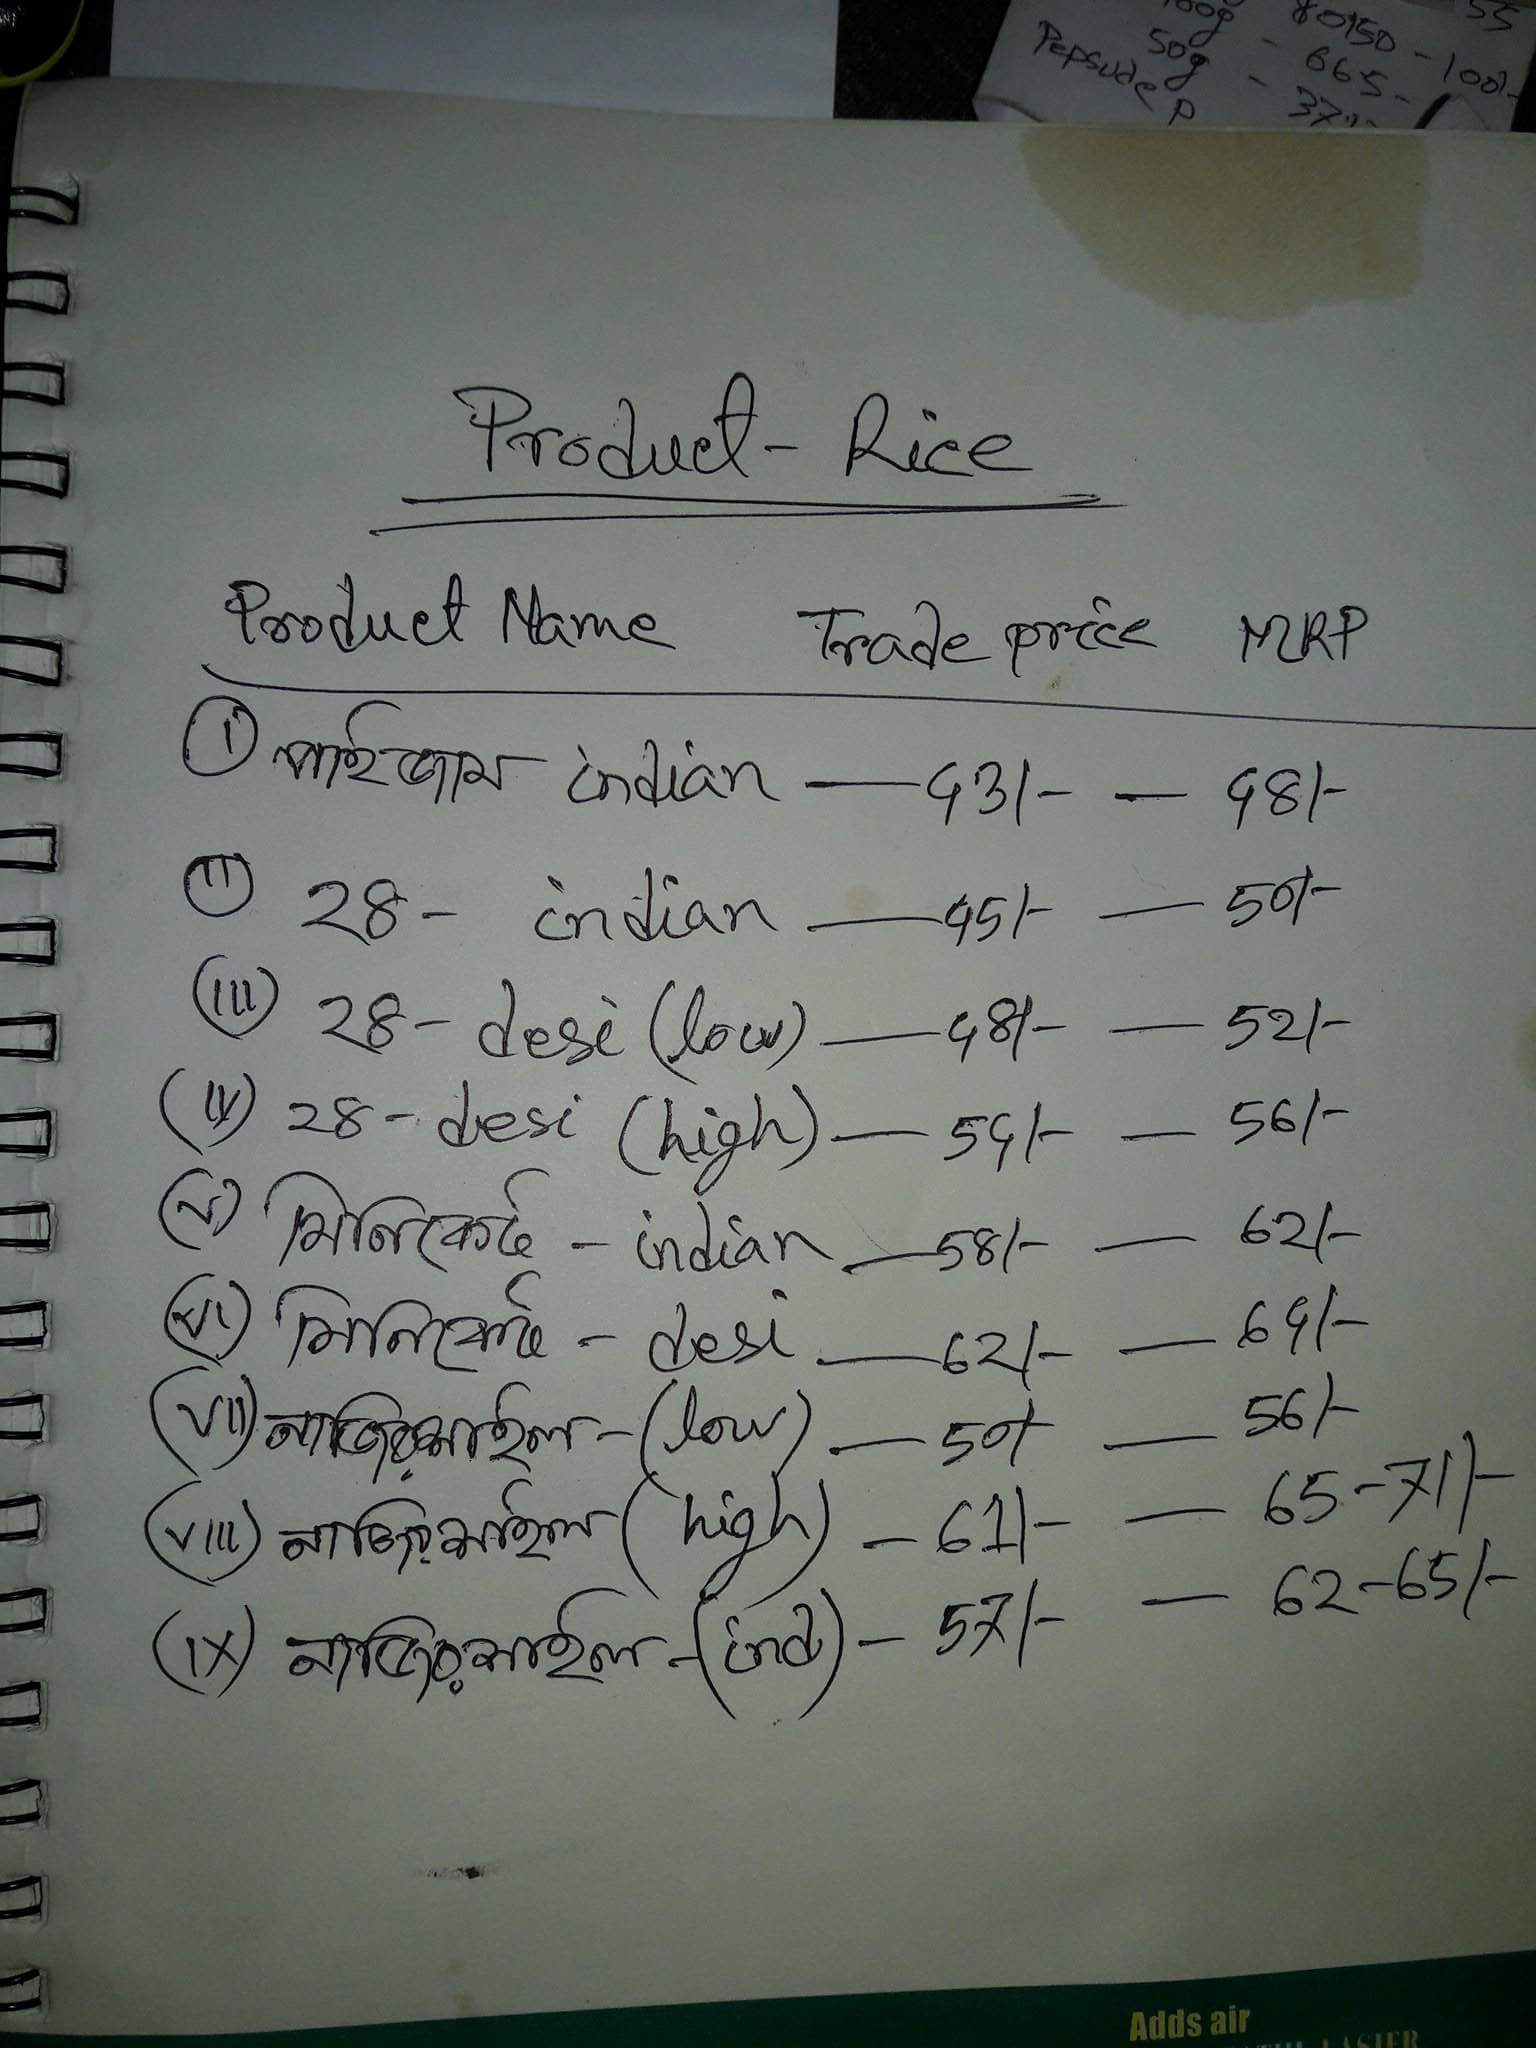 100g 80150 - 100/-
55
50g - 665 -
Pepsude P - 37
Product - Rice
Product Name Trade price MRP
(i) পাইজাম indian — 43/- — 48/-
(ii) 28 - indian — 45/- — 50/-
(iii) 28 - desi (low) — 48/- — 52/-
(iv) 28 - desi (high) — 54/- — 56/-
(v) মিনিকেট - indian — 58/- — 62/-
(vi) মিনিকেট - desi — 62/- — 64/-
(vii) নাজিরশাইল - (low) — 50/- — 56/-
(viii) নাজিরশাইল (high) - 61/- — 65-71/-
(ix) নাজিরশাইল - (ind) - 57/- — 62-65/-
Adds air